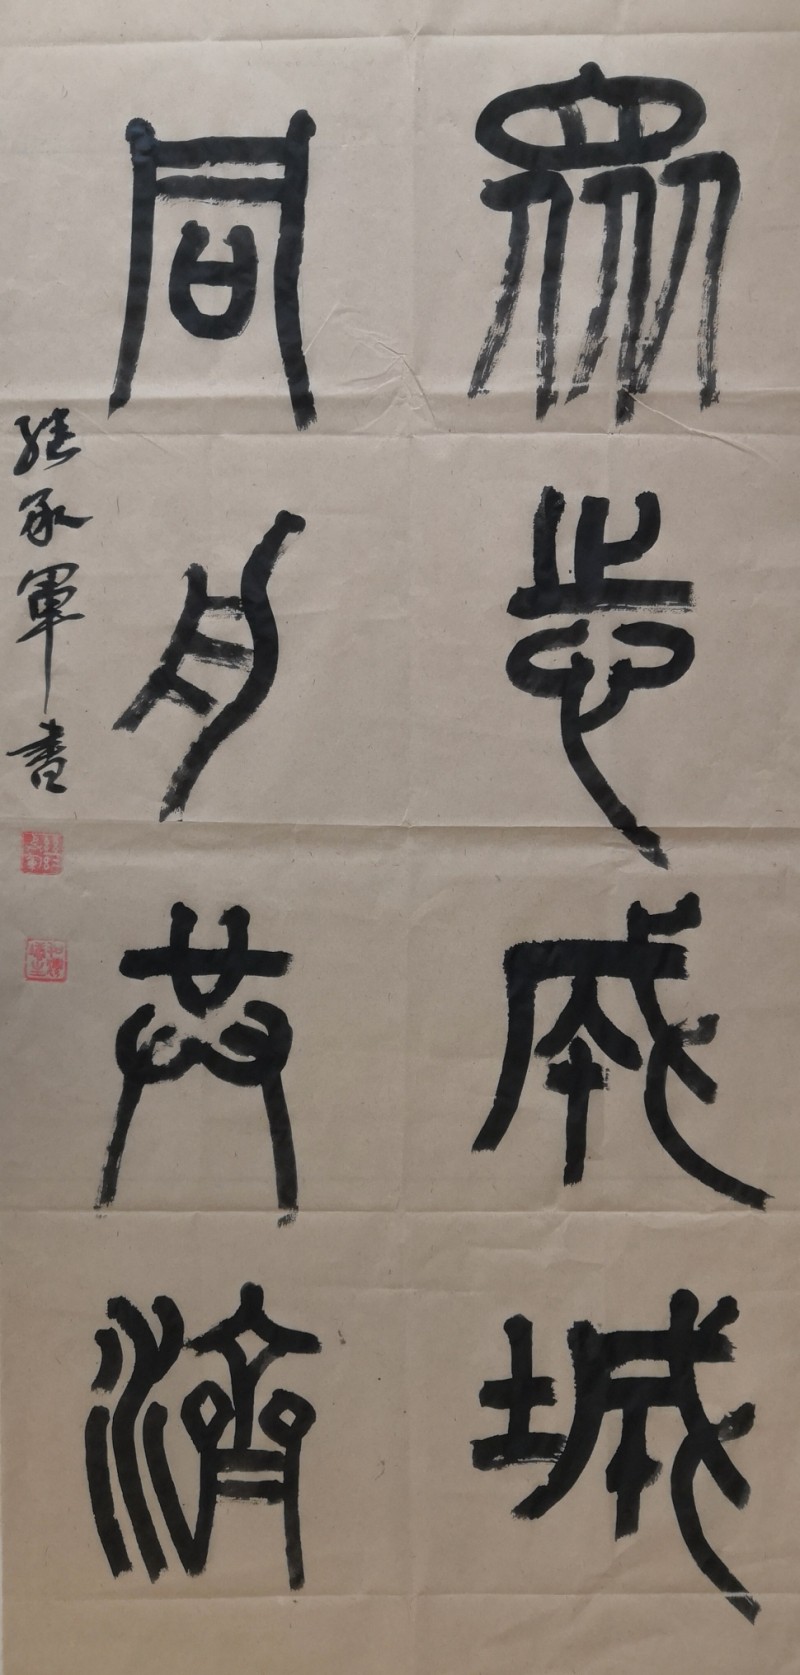 眾志成城
同舟共濟
軍書